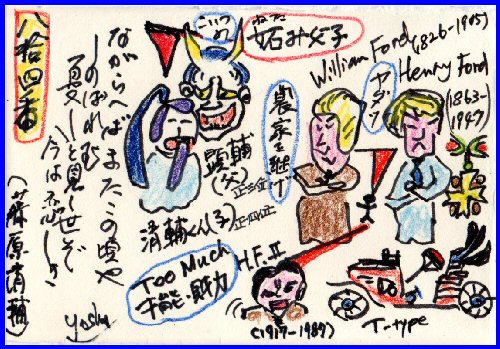 八拾四番
ながらへばまたこの頃や
しのばれむ
憂しと見し世ぞ
今は恋しき
(藤原清輔)
こいつめ
ねた
妬み父子
顕輔
(父)
正三位
清輔くん(子)
農家を継げ
William Ford (1826-1905)
Henry Ford
(1863-
1947)
Too Much
才能・財力
H.F.II
(1917-1987)
T-type